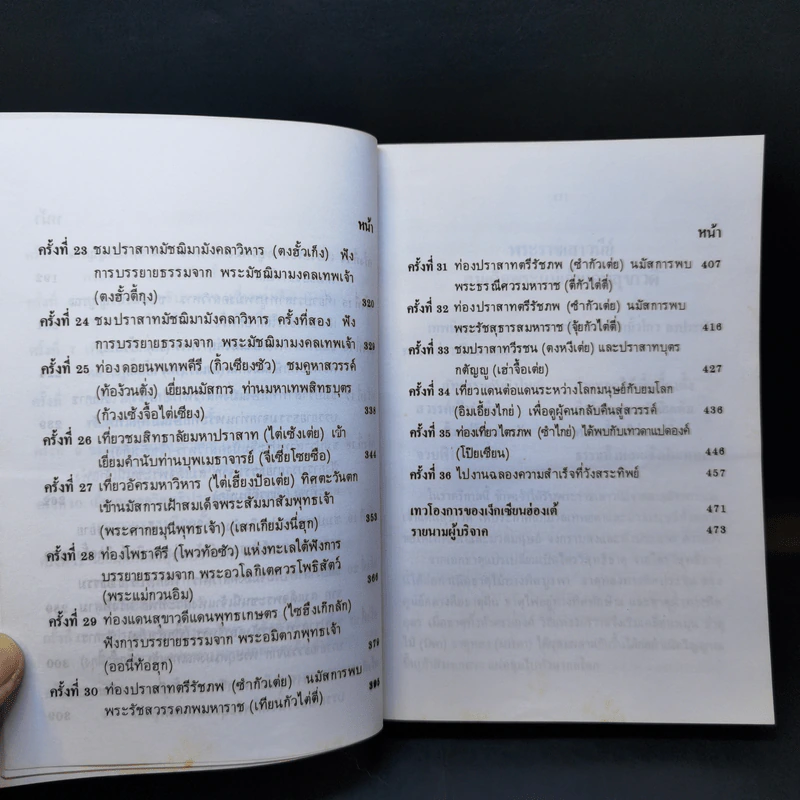 หน้า
ครั้งที่ 23 ชมปราสาทมัชฌิมามังคลาวิหาร (ตงฮั้วเก็ง) ฟัง
การบรรยายธรรมจาก พระมัชฌิมามงคลเทพเจ้า
(ตงฮั้วตี้กุง) 320
ครั้งที่ 24 ชมปราสาทมัชฌิมามังคลาวิหาร ครั้งที่สอง ฟัง
การบรรยายธรรมจาก พระมัชฌิมามงคลเทพเจ้า 329
ครั้งที่ 25 ท่องดอยนพเทพคีรี (กิ้วเซียงซัว) ชมคูหาสวรรค์
(ท้อง้วนตั่ง) เยี่ยมนมัสการ ท่านมหาเทพสิทธบุตร
(ก้วงเซ้งจื้อไต่เซียง) 338
ครั้งที่ 26 เที่ยวชมสิทธาลัยมหาปราสาท (ไต่เซ้งเต่ย) เฝ้า
เยี่ยมคำนับท่านบุพเมธาจารย์ (จี่เซี่ยไซยซือ) 344
ครั้งที่ 27 เที่ยวอัครมหาวิหาร (ไต่เฮี้ยงป้อเต่ย) ทิศตะวันตก
เข้านมัสการเฝ้าสมเด็จพระสัมมาสัมพุทธเจ้า
(พระศากยมุนีพุทธเจ้า) (เสกเกียมังนี่ฮุก) 353
ครั้งที่ 28 ท่องโพธาคีรี (โพวท้อซัว) แห่งทะเลใต้ฟังการ
บรรยายธรรมจาก พระอวโลกิเตศวรโพธิสัตว์
(พระแม่กวนอิม) 366
ครั้งที่ 29 ท่องแดนสุขาวดีแดนพุทธเกษตร (ไซฮึงเก็กลัก)
ฟังการบรรยายธรรมจาก พระอมิตาภพุทธเจ้า
(ออนี่ท้อฮุก) 379
ครั้งที่ 30 ท่องปราสาทตรีรัชภพ (ซำกัวเต่ย) นมัสการพบ
พระรัชสวรรคภพมหาราช (เทียนกัวไต่ตี่)
หน้า
ครั้งที่ 31 ท่องปราสาทตรีรัชภพ (ซำกัวเต่ย) นมัสการพบ 407
พระธรณีศวรมหาราช (ตี่กัวไต่ตี่)
ครั้งที่ 32 ท่องปราสาทตรีรัชภพ (ซำกัวเต่ย) นมัสการพบ
พระรัชสุธารสมหาราช (จุ้ยกัวไต่ตี่) 416
ครั้งที่ 33 ชมปราสาทวีรชน (ตงหงีเต่ย) และปราสาทบุตร
กตัญญู (เฮ่าจื้อเต่ย) 427
ครั้งที่ 34 เที่ยวแดนต่อแดนระหว่างโลกมนุษย์กับยมโลก
(อิมเอี้ยงไกย่) เพื่อดูผู้คนกลับคืนสู่สวรรค์ 436
ครั้งที่ 35 ท่องเที่ยวไตรภพ (ซำไกย่) ได้พบกับเทวดาแปดองค์
(โป๊ยเซียน) 446
ครั้งที่ 36 ไปงานฉลองความสำเร็จที่วังสระทิพย์ 457
เทวโองการของเง็กเซียนฮ่องเต้ 471
รายนามผู้บริจาค 473